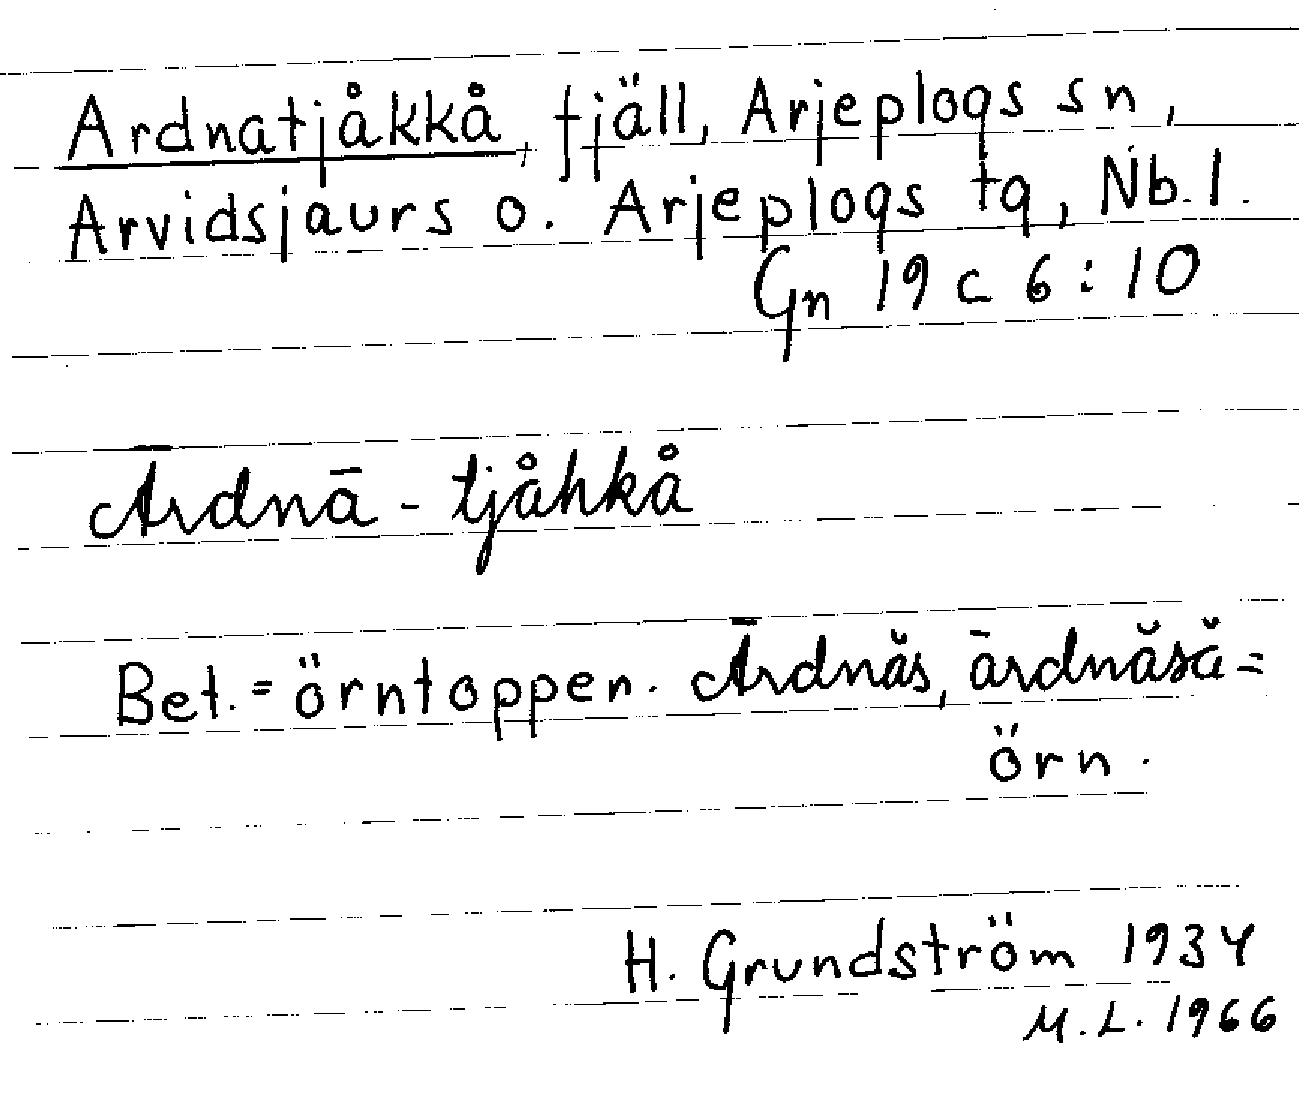 Ardnatjåkkå, fjäll, Arjeplogs sn,
Arvidsjaurs o. Arjeplogs tg, Nb. l.
Gn 19 c 6:10
Ārdnā - tjåhkå
Bet. = örntoppen. Ārdnăs, ārdnăsă =
örn.
H. Grundström 1934
M.L. 1966